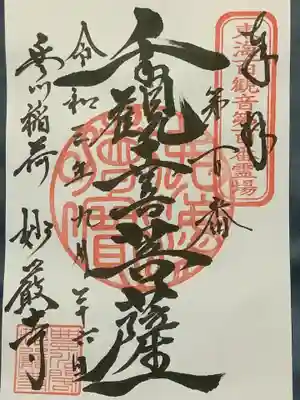 奉拝
東海百観音第百番霊場
第百番
千手観音菩薩
令和三年九月二十六日
豊川稲荷 妙厳寺